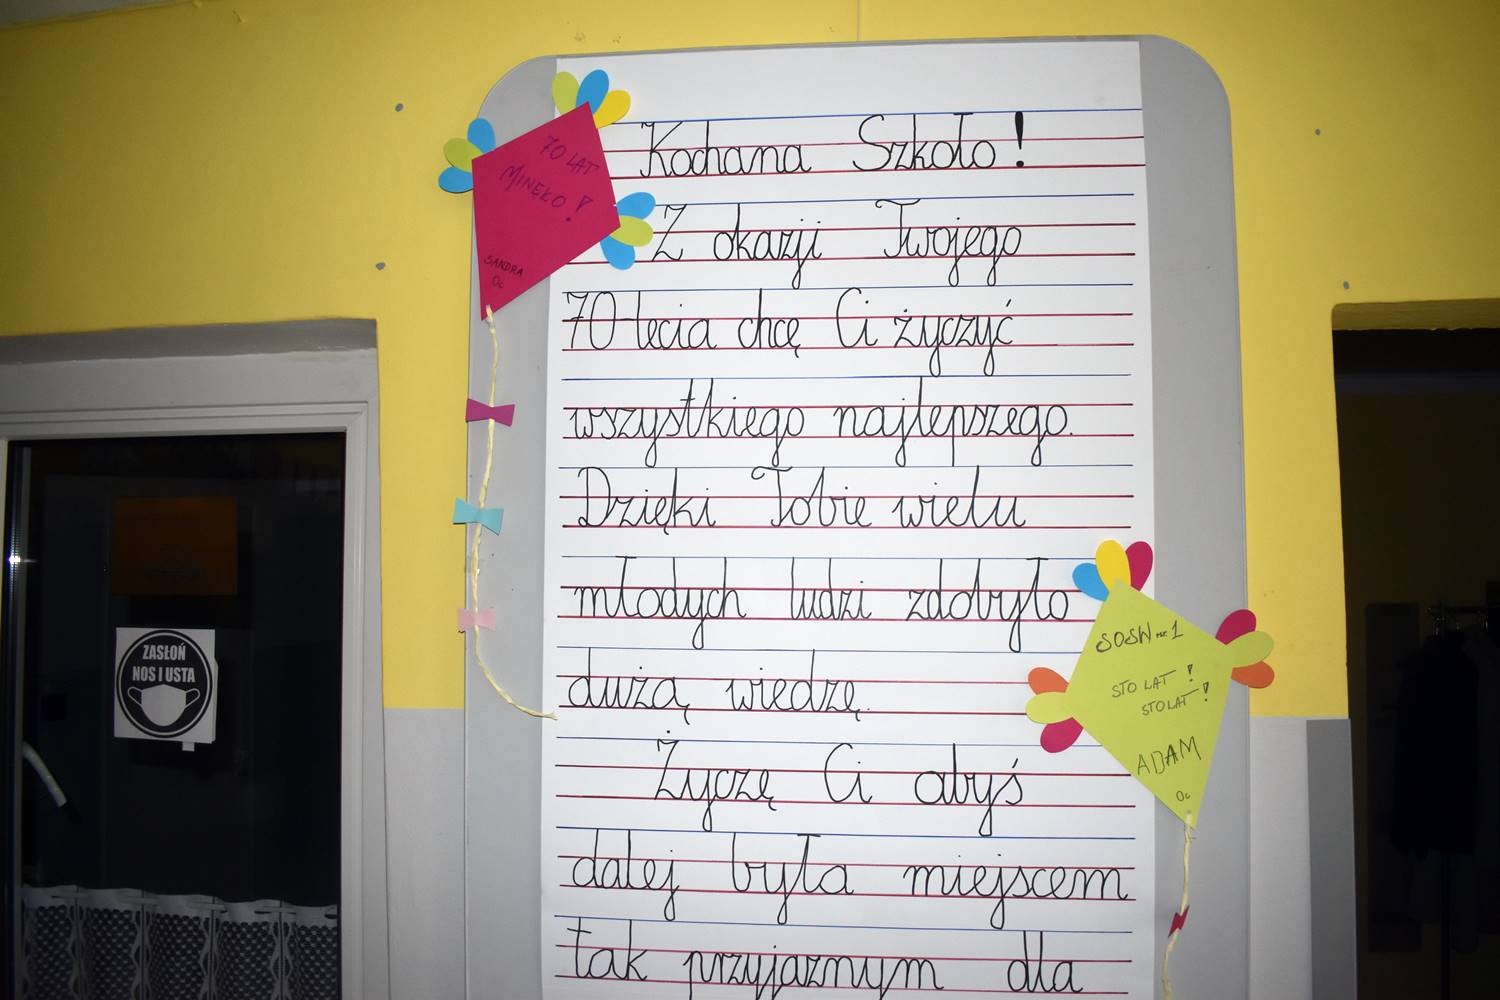 Kochana Szkoło!
Z okazji Twojego
70-lecia chcę Ci życzyć
wszystkiego najlepszego.
Dzięki Tobie wielu
młodych ludzi zdobyło
dużą wiedzę.
Życzę Ci abyś
dalej była miejscem
tak przyjaznym dla
70 LAT
MINĘŁO!
SANDRA
Oc
SOSW nr. 1
STO LAT!
STO LAT!
ADAM
Oc
ZASŁOŃ
NOS I USTA